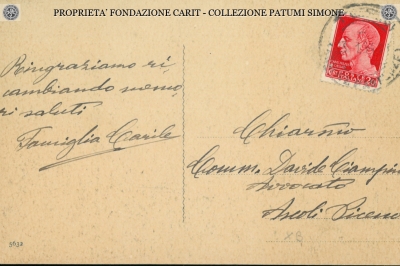 PROPRIETA' FONDAZIONE CARIT - COLLEZIONE PATUMI SIMONE
Ringraziamo ri
cambiando
ri saluti
Famiglia Carile
Chiar/mo
Comm. Davide Ciampini
Avvocato
Ascoli Piceno
3632